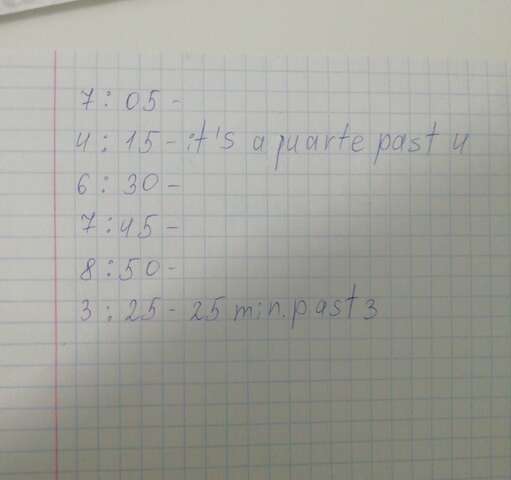 7 : 05 -
4 : 15 - it's a quarte past 4
6 : 30 -
7 : 45 -
8 : 50 -
3 : 25 - 25 min. past 3